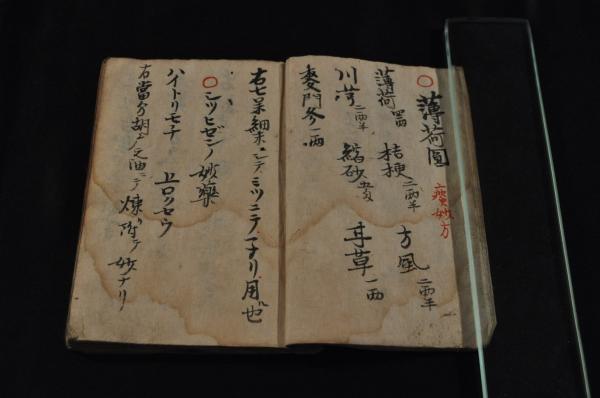 ○薄荷圓
痰妙方
薄荷 四両 桔梗 二両半 方風 二両半
川芎 二両半 縮砂 五匁 甘草 一両
麥門冬 一両
右七味細末シテミツニテ子リ用也
○シツヒゼンノ妙藥
ハイトリモチ
右當分胡广之油ニテ煉附テ妙ナリ